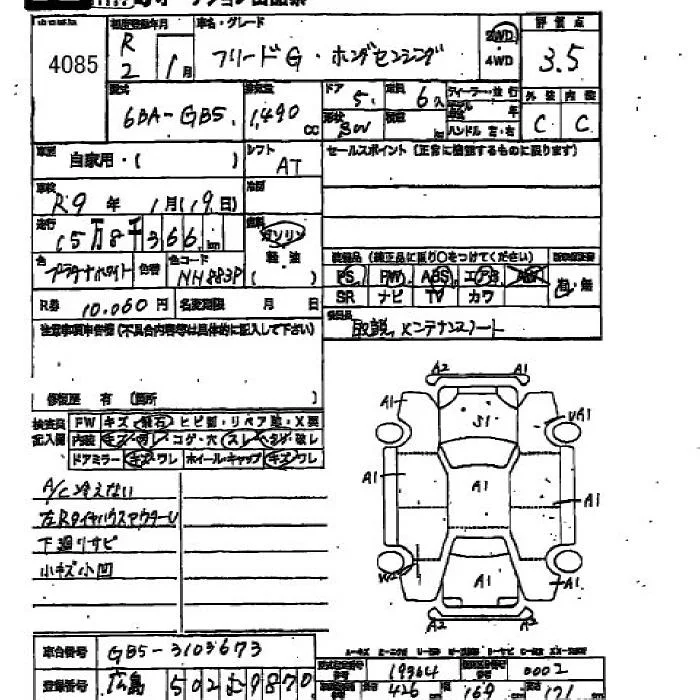 初度登録年月 車名・グレード 評価点
4085 R2 1月 フリードG・ホンダセンシング 2WD 4WD 3.5
型式 排気量 ドア 定員 ディーラー・並行 外装 内装
6BA-GB5 1,490 CC 5 6人 年 C C
形状 ハンドル 左・右
車歴 自家用・( ) シフト AT セールスポイント(正常に機能するものに限ります)
車検 R9年 1月(19日) 冷房
走行 15万8千366km 燃料 ガソリン 軽油 ( )
色 プラチナホワイト 色替 色コード NH883P
装備品(純正品に限り○をつけてください)
PS PW ABS エアB 有・無
SR ナビ TV カワ
R券 10,060円 名変期限 月 日
取説、メンテナンスノート
注意事項車告欄(不具合内容等は具体的に記入して下さい)
修復歴 有(箇所 )
検査員記入欄 FW キズ 飛石 ヒビ割・リペア跡・X要
内装 キズ コゲ・穴 スレ 破レ
ドアミラー キズ ワレ ホイール・キャップ キズ ワレ
A/C冷えない
左RタイヤハウスアウターU
下廻りサビ
小キズ小凹
A2 A1
A1 S1 A1
A1 A1 A1
A1 A1
A2 A2
車台番号 GB5-3103673
登録番号 広島 502 む 9870
19364 0002
426 169 171